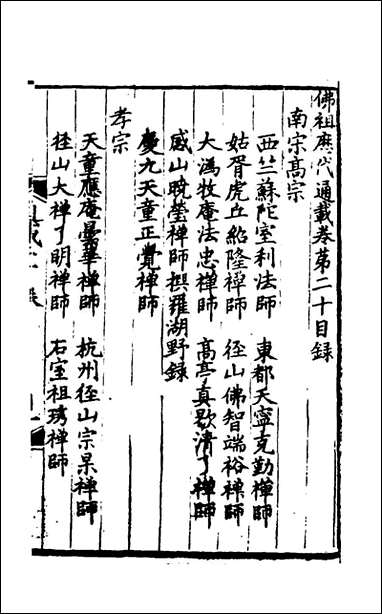 佛祖歷代通載卷第二十目録
南宋高宗
西竺蘇陀室利法師　東都天寧克勤禪師
姑胥虎丘紹隆禪師　徑山佛智端裕禪師
大溈牧庵法忠禪師　高亭真歇清了禪師
感山曉瑩禪師撰羅湖野録
慶元天童正覺禪師
孝宗
天童應庵曇華禪師　杭州徑山宗杲禪師
徑山大禪了明禪師　石室祖琇禪師